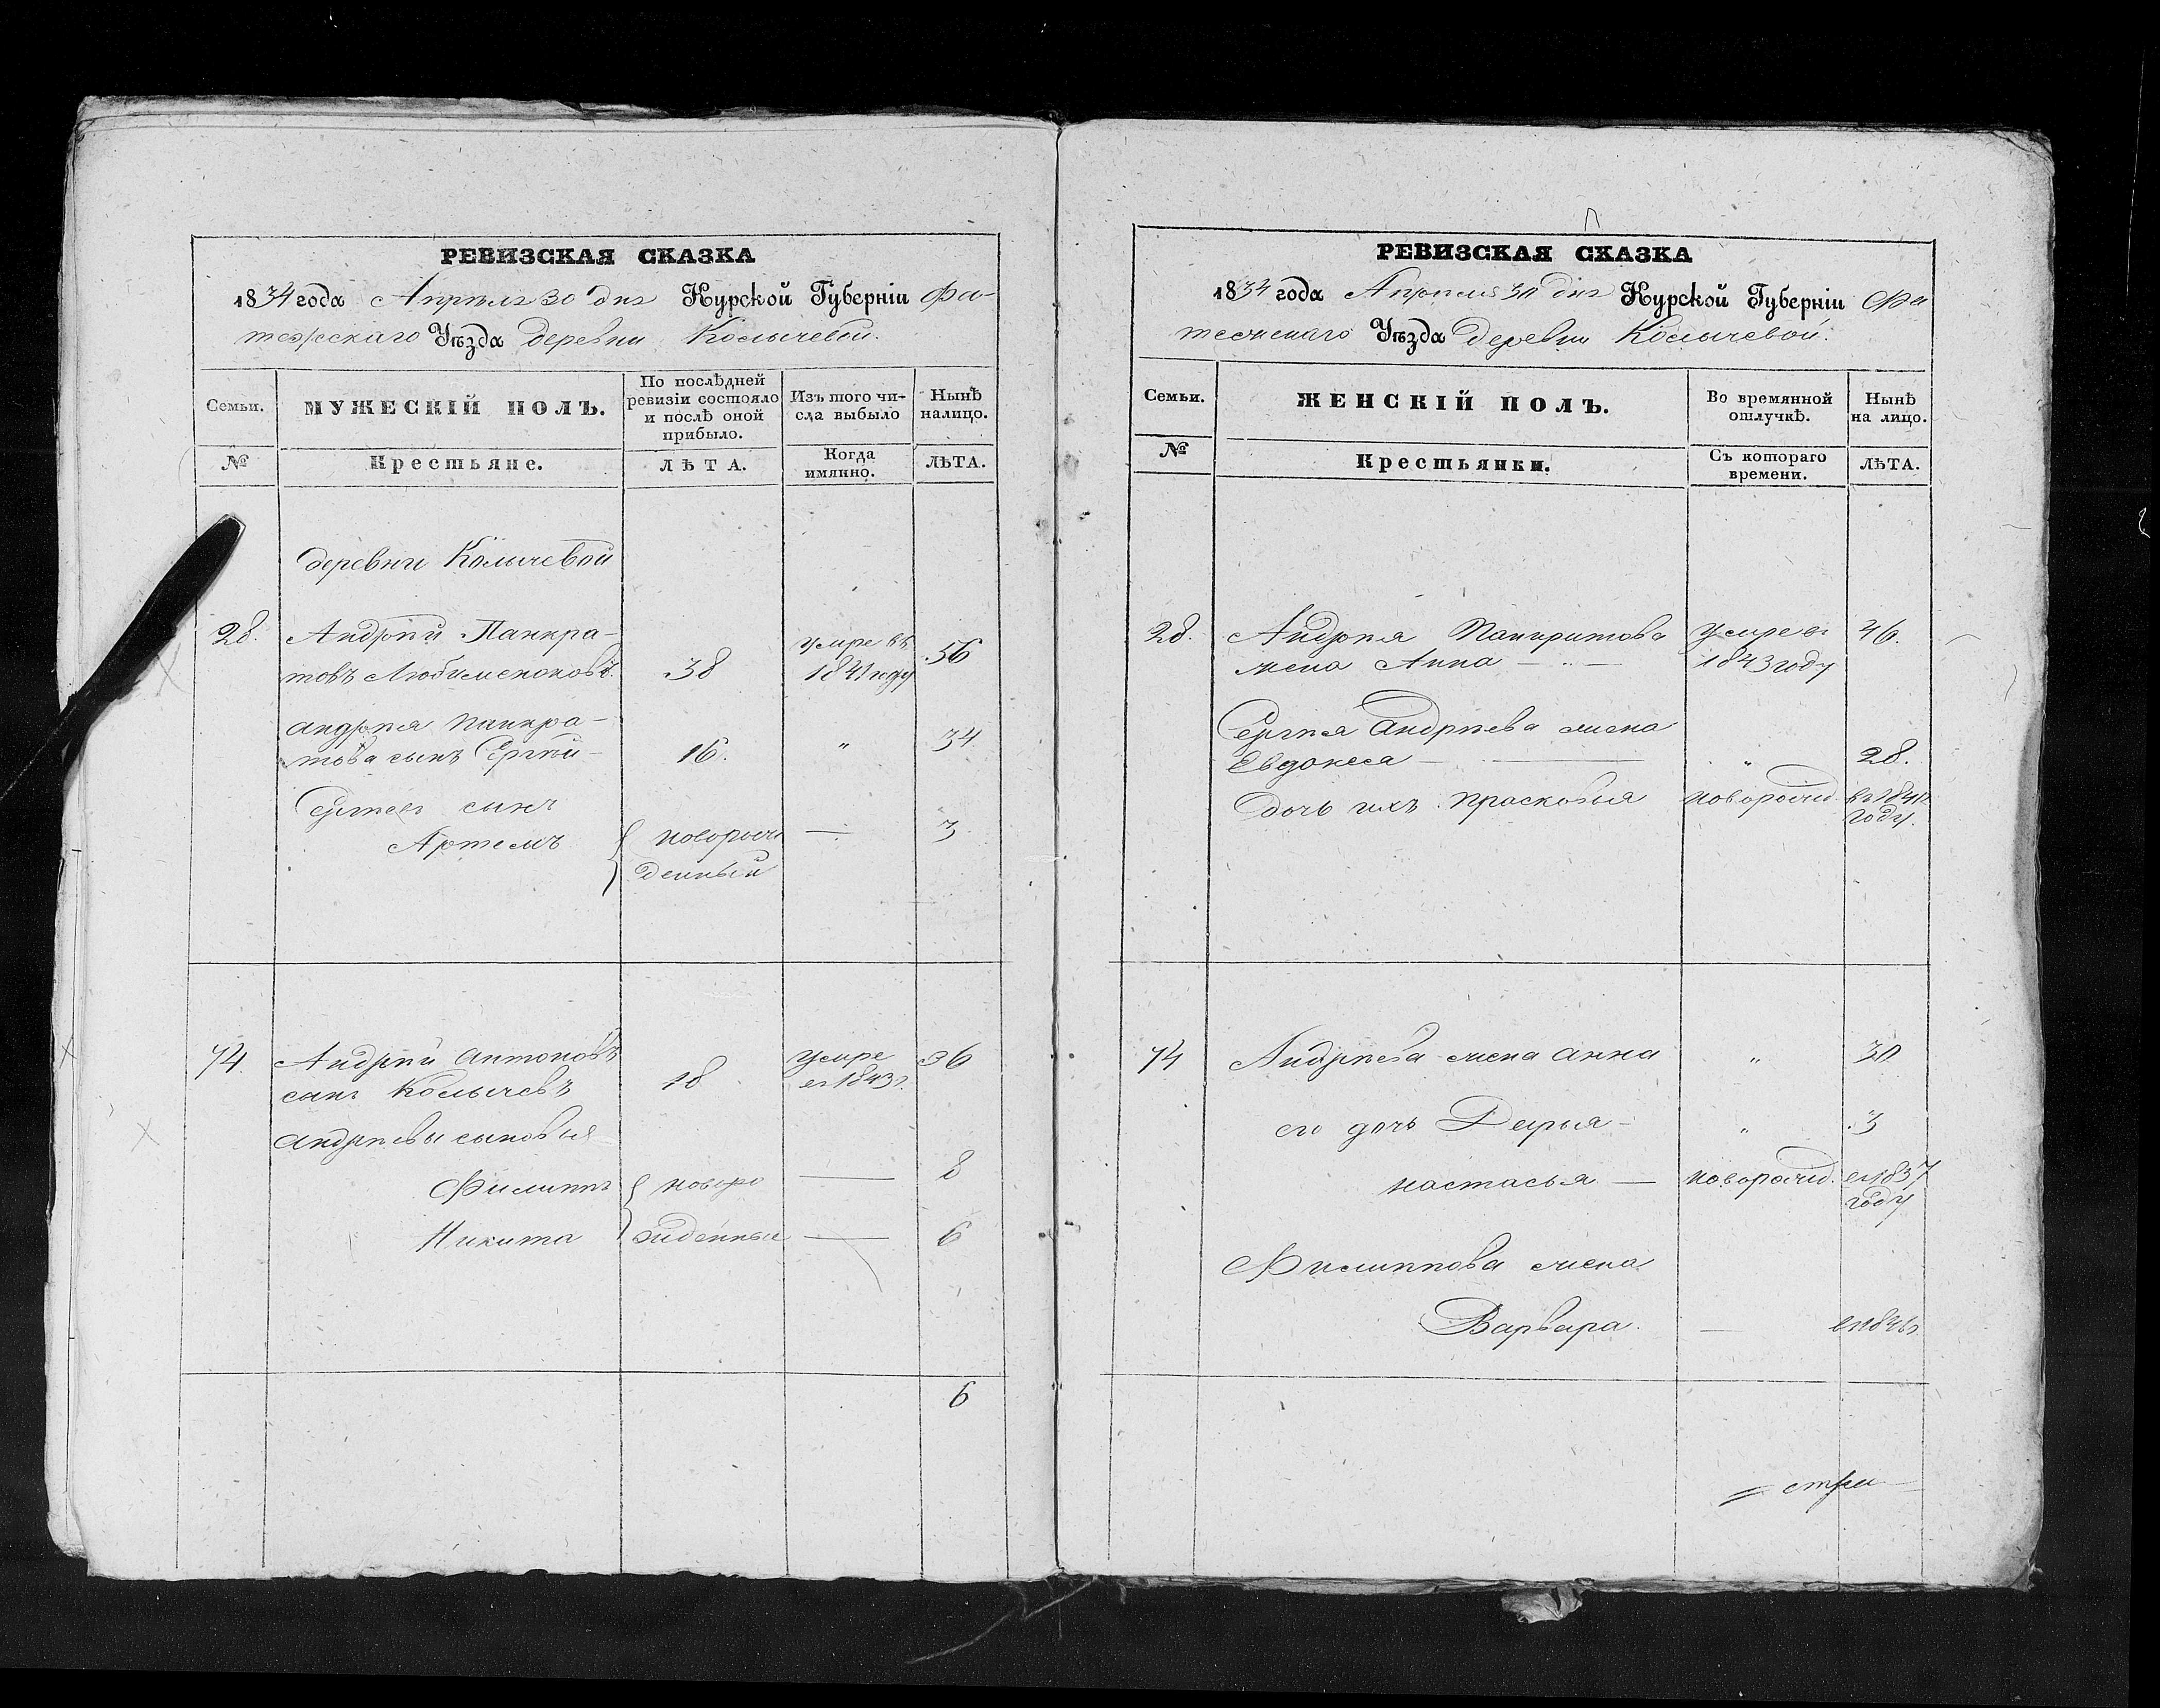 РЕВИЗСКАЯ СКАЗКА
1834 года Апрѣля 30 дня Курской Губерніи Фа-
тежскаго Уѣзда деревни Колычевой.
Семьи.
МУЖЕСКІЙ ПОЛЪ.
По послѣдней
ревизіи состояло
и послѣ оной
прибыло.
Изъ того чи-
сла выбыло
Нынѣ
налицо.
№
Крестьяне.
ЛѢТА.
Когда
имянно.
ЛѢТА.
деревни Колычевой
28. Андрѣй Панкра-
товъ 38 умре въ 1841 году 56
Андрѣя Панкра-
това сынъ Сергѣй 16. „ 34
Сергѣевъ сынъ
Артемъ новорож
денный — 3
74. Андрѣй Антоновъ
сынъ Колычевъ 18 умре въ 1843 г. 36
Андрѣевы сыновья
Филиппъ новоро — 8
Никита жденныи — 6
6
РЕВИЗСКАЯ СКАЗКА
1834 года Апрѣля 30 дня Курской Губерніи Фа
тежскаго Уѣзда деревни Колычевой.
Семьи.
ЖЕНСКІЙ ПОЛЪ.
Во времянной
отлучкѣ.
Нынѣ
на лицо.
№
Крестьянки.
Съ котораго
времени.
ЛѢТА.
28. Андрѣя Панкратова умре въ 46.
жена Анна 1843 году
Сергѣя Андрѣева жена
Евдокеа „ 28.
дочь ихъ Прасковья новорожд.
году.
74 Андрѣева жена Анна „ 30
его дочь Дарья „ 3
Настасья — новорожд. въ 1837
году
Филиппова жена
Варвара. —